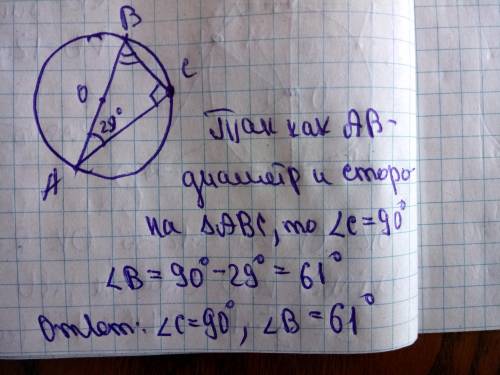 B
C
O
29°
A
Так как AB-
диаметр и сторо-
на ΔABC, то ∠C=90°
∠B = 90°-29° = 61°
Ответ: ∠C=90°, ∠B = 61°